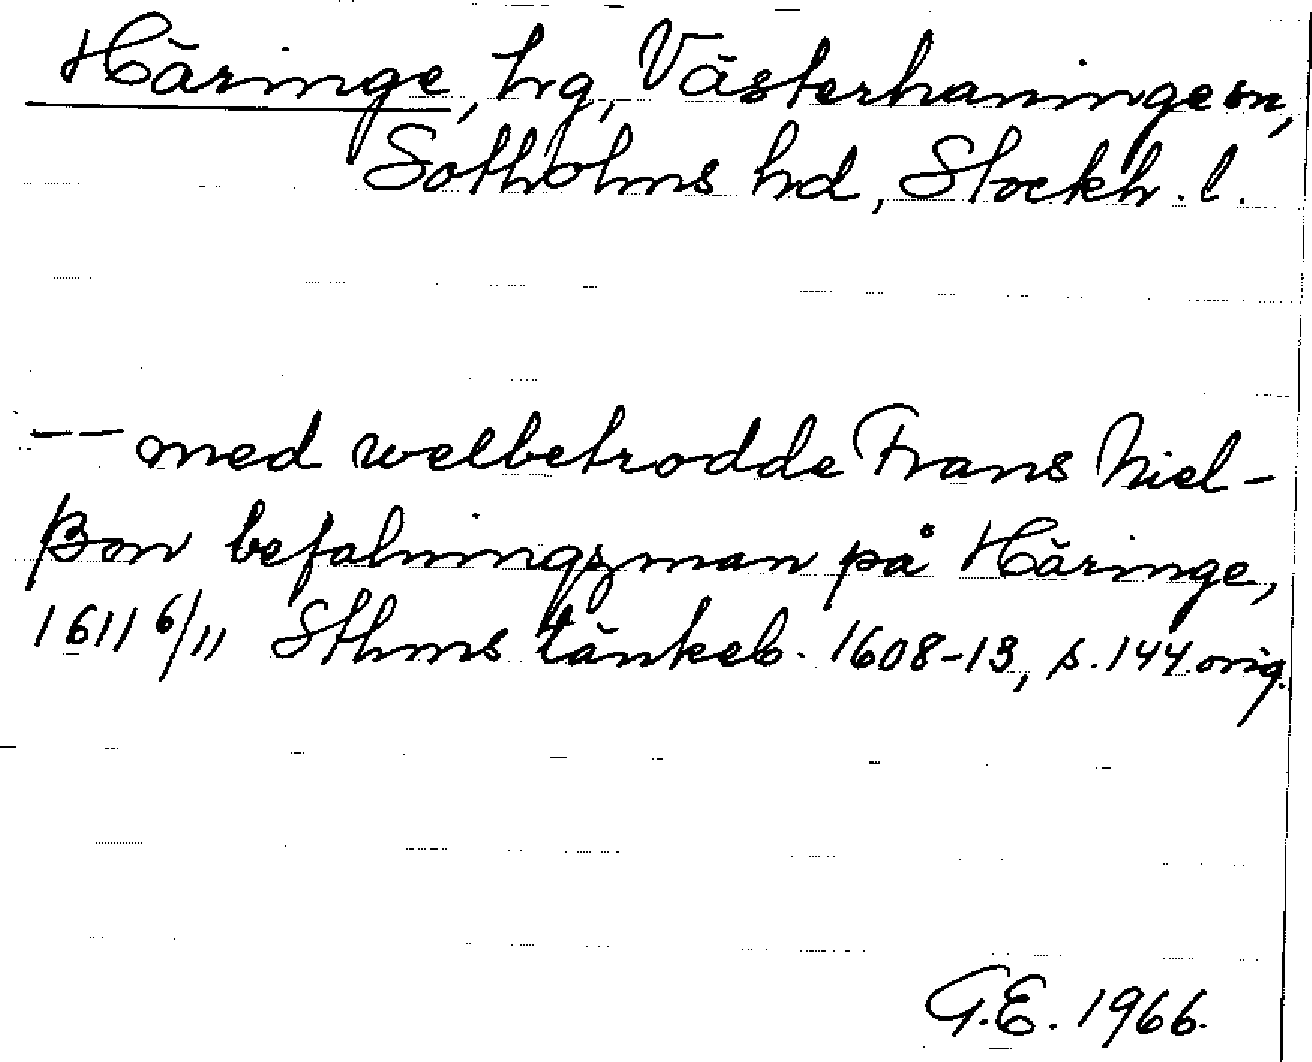 Häringe, hg, Västerhaninge sn,
Sotholms hd, Stockh. l.
-- med welbetrodde Frans Niel-
ßon befalningzman på Häringe,
1611 6/11 Sthms tänkeb. 1608-13, s. 144 orig.
G.E. 1966.